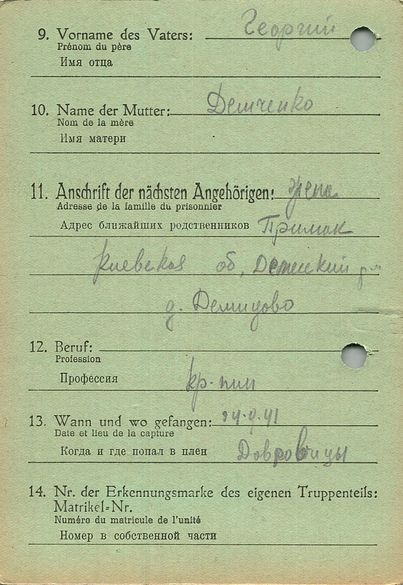 9. Vorname des Vaters: Георгий
Prénom du père
Имя отца
10. Name der Mutter: Демченко
Nom de la mère
Имя матери
11. Anschrift der nächsten Angehörigen: жена
Adresse de la famille du prisonnier
Адрес ближайших родственников Примак
Киевская об,
д. Демидово
12. Beruf:
Profession
Профессия
13. Wann und wo gefangen: 24.9.41
Date et lieu de la capture
Когда и где попал в плен
14. Nr. der Erkennungsmarke des eigenen Truppenteils:
Matrikel-Nr.
Numéro du matricule de l'unité
Номер в собственной части